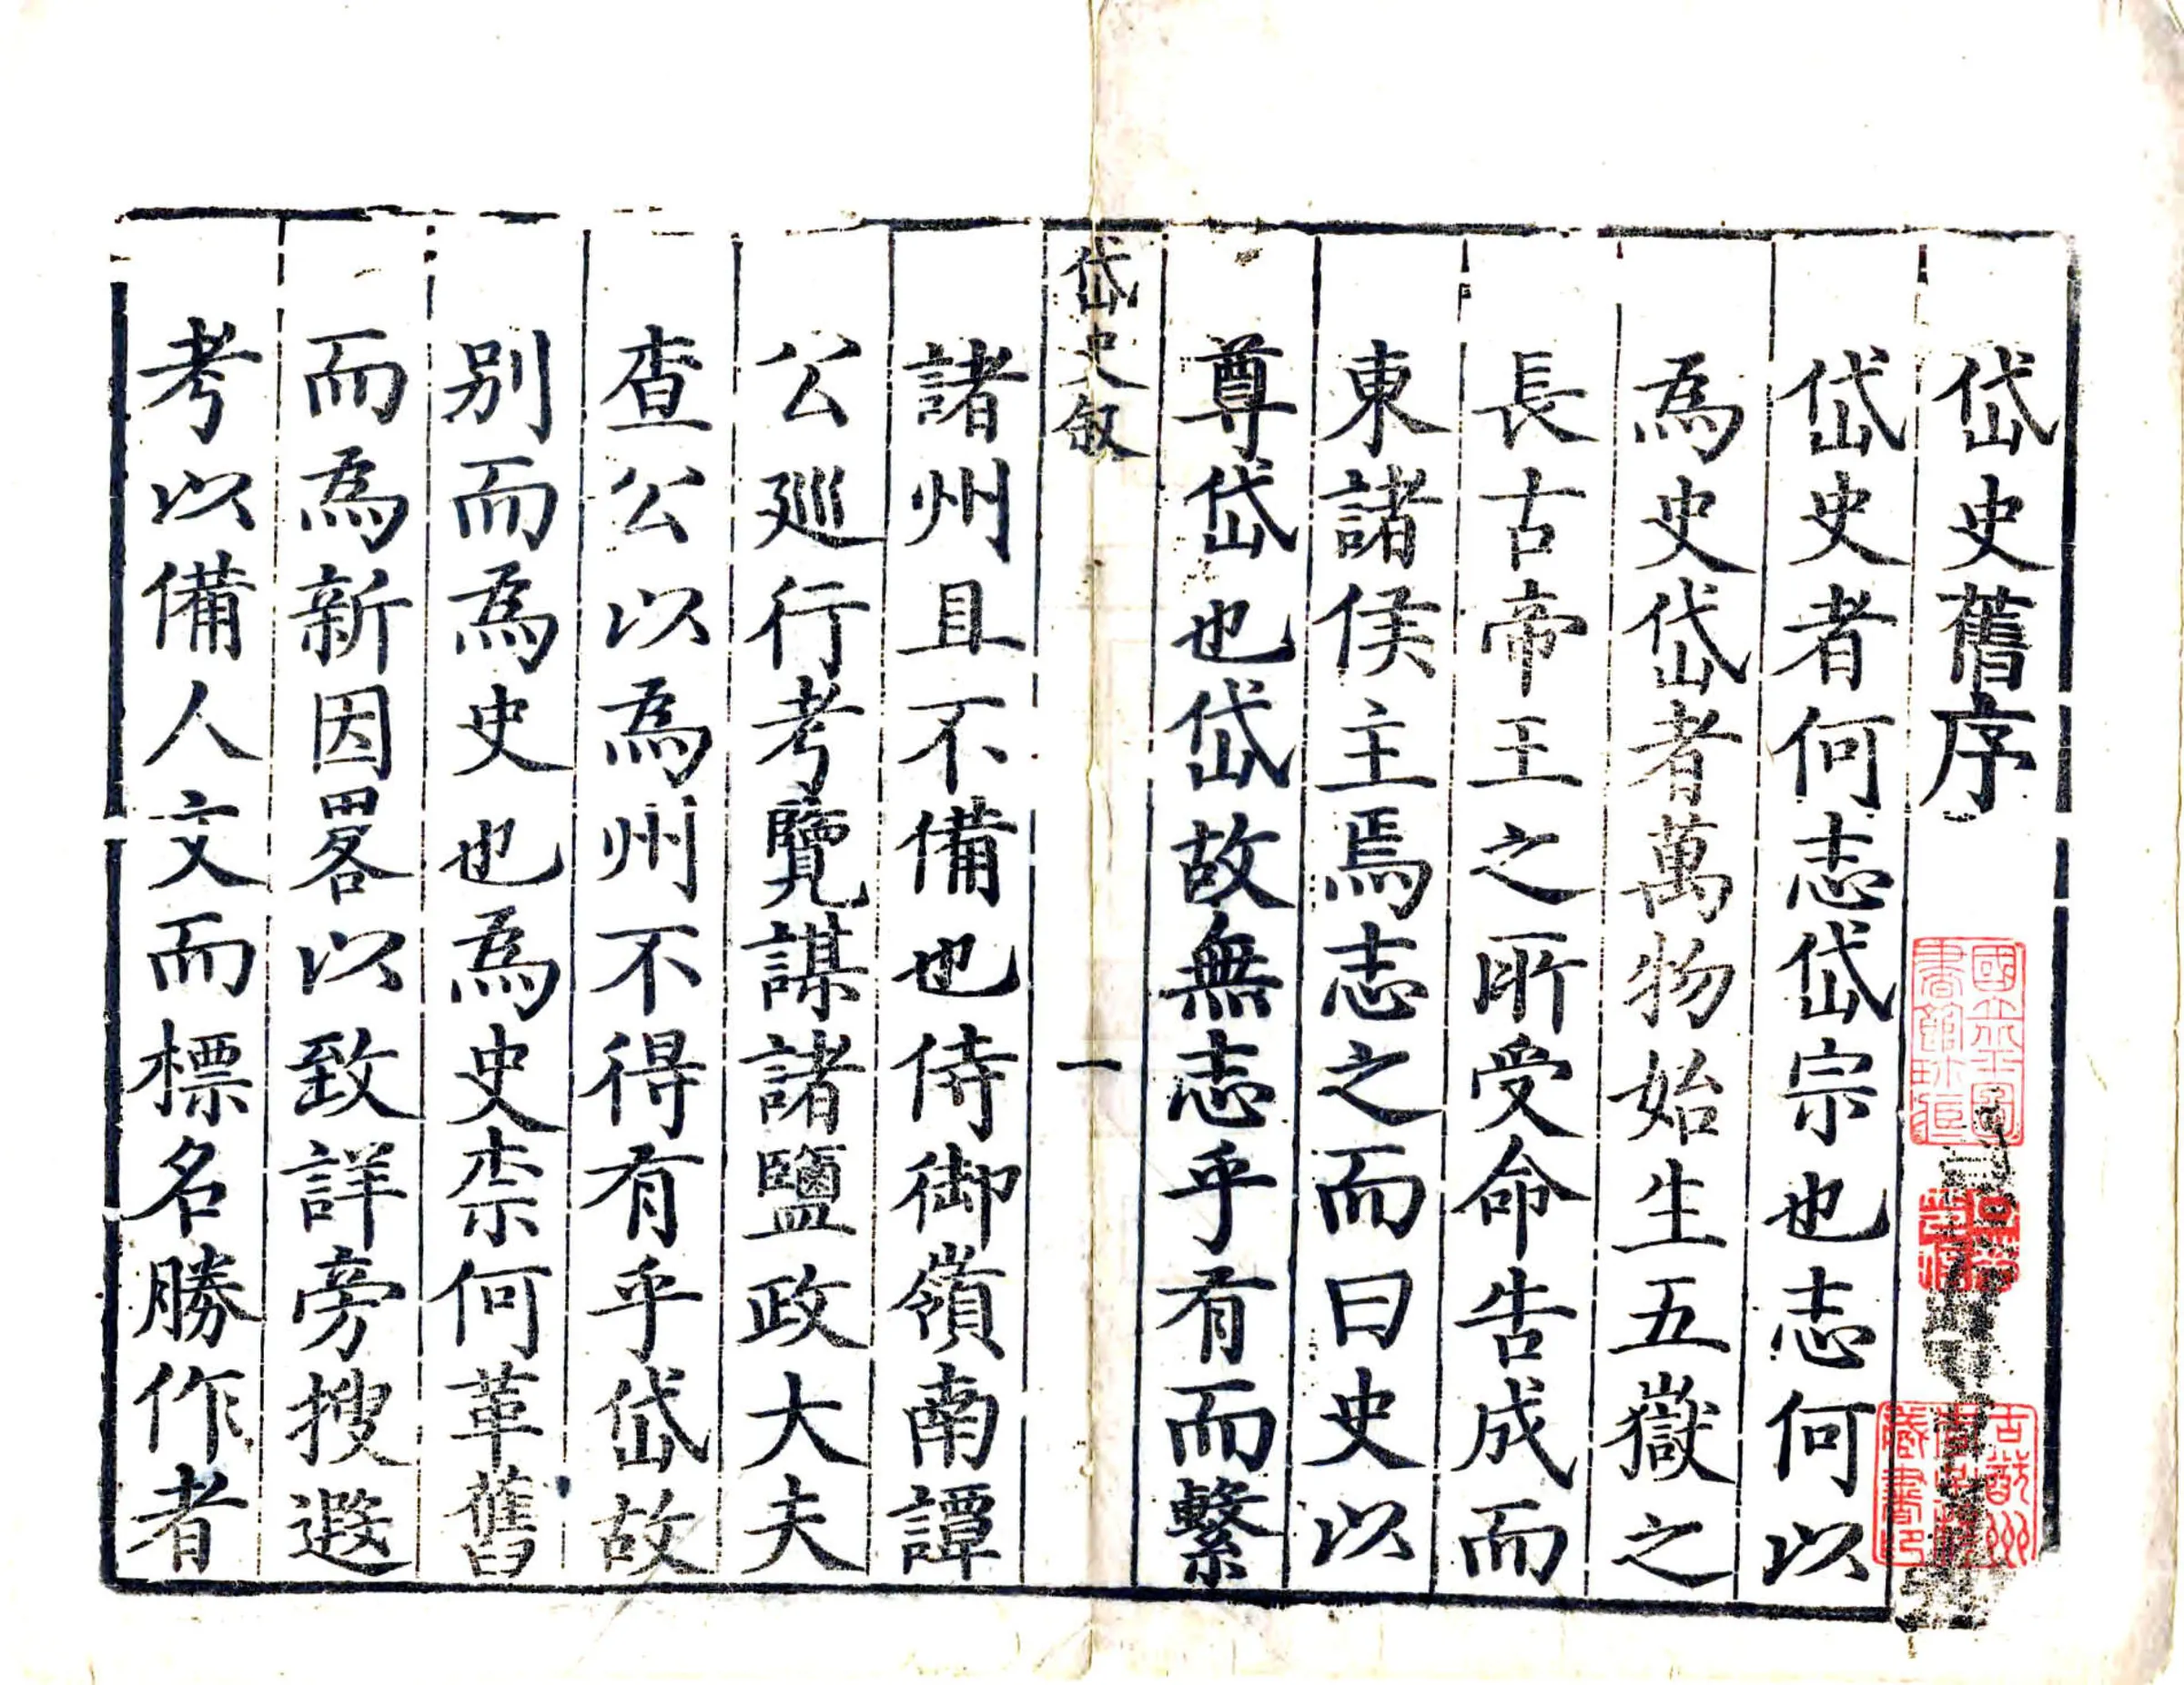 岱史舊序
岱史者何志岱宗也志何以
為史岱者萬物始生五嶽之
長古帝王之所受命告成而
東諸侯主焉志之而曰史以
尊岱也岱故無志乎有而繫
岱史叙
一
諸州且不備也侍御嶺南譚
公廵行考覽謀諸鹽政大夫
查公以為州不得有乎岱故
别而為史也為史柰何革舊
而為新因畧以致詳旁搜遐
考以備人文而標名勝作者